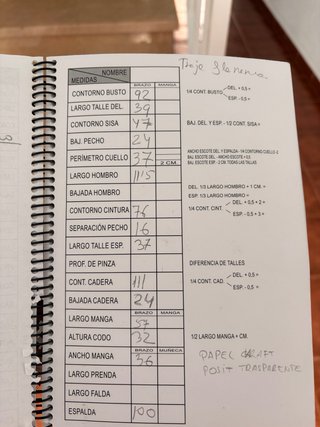 Traje flamenca
NOMBRE
MEDIDAS BRAZO MANGA
CONTORNO BUSTO 92 1/4 CONT. BUSTO DEL. + 0,5 =
ESP. -0,5 =
LARGO TALLE DEL. 39
CONTORNO SISA 47 BAJ. DEL Y ESP. - 1/2 CONT. SISA=
BAJ. PECHO 24
PERÍMETRO CUELLO 37 ANCHO ESCOTE DEL. Y ESPALDA - 1/4 CONTORNO CUELLO -2
BAJ. ESCOTE DEL. - ANCHO ESCOTE + 0,5
2 CM. BAJ. ESCOTE ESP. - 2 CM. TODAS LAS TALLAS
LARGO HOMBRO 11'5
BAJADA HOMBRO DEL. 1/3 LARGO HOMBRO + 1 CM. =
ESP. 1/3 LARGO HOMBRO =
CONTORNO CINTURA 76 1/4 CONT. CINT. DEL. + 0,5 + 2 =
ESP. - 0,5 + 3 =
SEPARACIÓN PECHO 16
LARGO TALLE ESP. 37
PROF. DE PINZA DIFERENCIA DE TALLES
CONT. CADERA 111 1/4 CONT. CAD. DEL. + 0,5 =
ESP. - 0,5 =
BAJADA CADERA 24
BRAZO MANGA
LARGO MANGA 57
ALTURA CODO 32 1/2 LARGO MANGA + CM.
BRAZO MUÑECA
ANCHO MANGA 36 PAPEL KRAFT
LARGO PRENDA POSIT TRASPARENTE
LARGO FALDA
ESPALDA 100